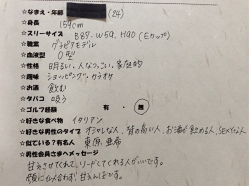 ☆なまえ・年齢 (24)
☆身長
154cm
☆スリーサイズ B89. W59. H90 (Eカップ)
☆職業 グラビアモデル
☆血液型 O型
☆性格 明るい、人なつっこい、家庭的
☆趣味 ショッピング、カラオケ
☆お酒 飲む
☆タバコ 吸う
☆ゴルフ経験 有・無
☆好きな食べ物 イタリアン
☆好きな男性のタイプ オシャレな人、背の高い人、お酒が飲める人、SEXな人
☆似ている?有名人 東原亜希
☆男性会員さまへメッセージ
甘えさせてくれて、リードしてくれる人がいいです。
顔に似合わず、甘えんぼです。